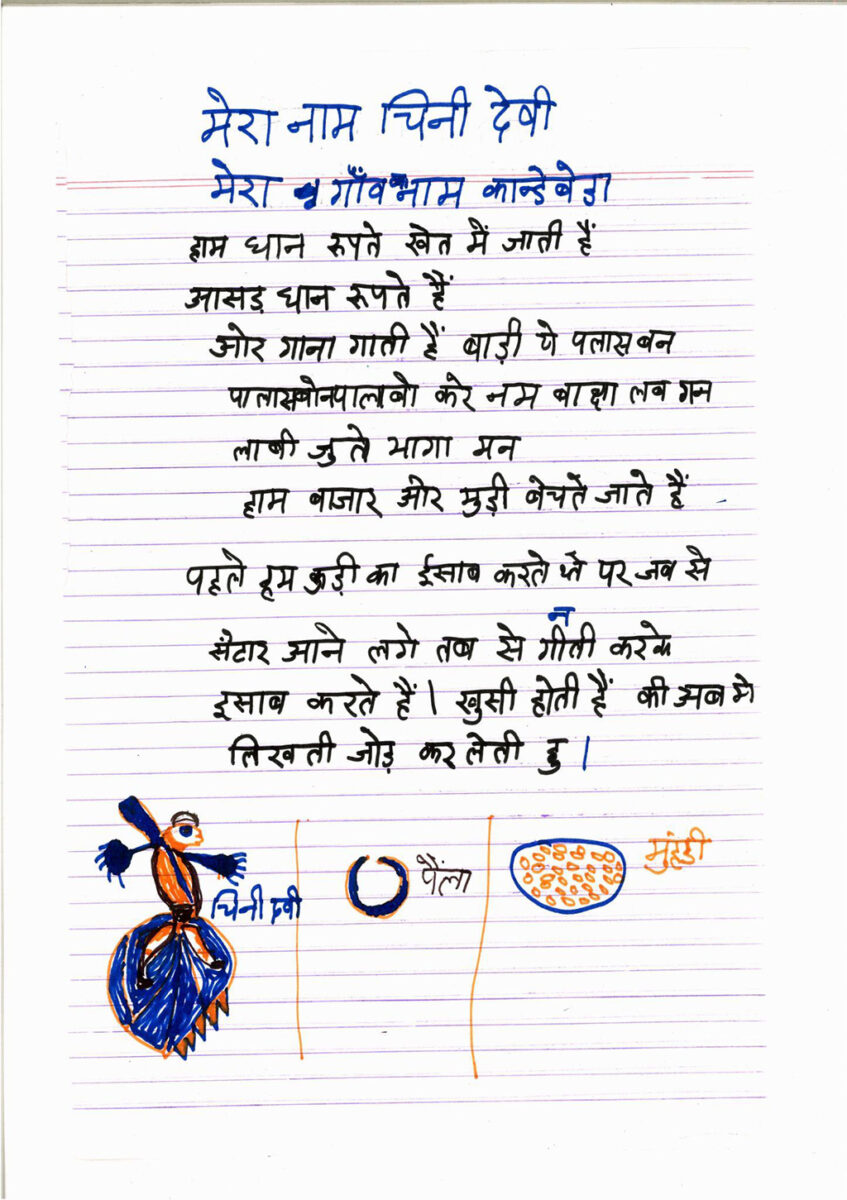 मेरा नाम चिनी देवी
मेरा गाँव का नाम कान्डेबेडा
हाम धान रूपते खेत में जाती हैं
आसड़ धान रूपते हैं
ओर गाना गाती हैं बाड़ी पे पलासबन
पालासबोनपालाबो करे नम बाक्षा लब गन
लाबी जुते भागा मन
हाम बाजार ओर मुड़ी बेचते जाते हैं
पहले हम कुड़ी का ईसाब करते थे पर जब से
सेंटार आने लगे तब से गीनती करके
इसाब करते हैं। खुसी होती हैं की अब मे
लिखती जोड़ कर लेती हु।
चिनी देवी
पैंला
मुंहडी